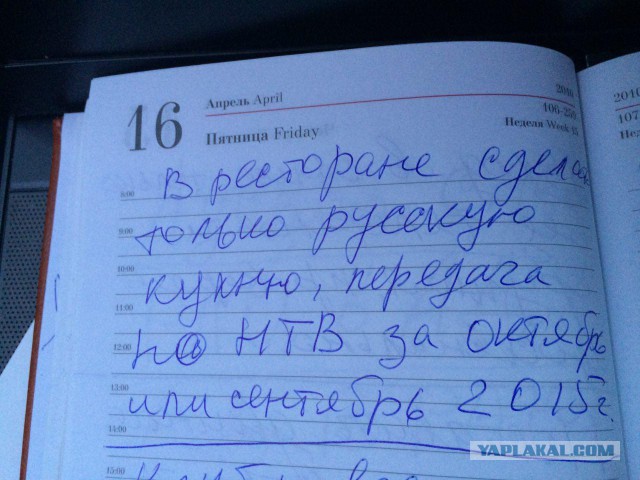 16
Апрель April
2010
106-259
Пятница Friday
Неделя Week 15
2010
107
8:00
В ресторане сделать
9:00
только русскую
10:00
кухню, передача
11:00
12:00
на НТВ за октябрь
13:00
или сентябрь 2015г.
14:00
15:00
YAPLAKAL.COM